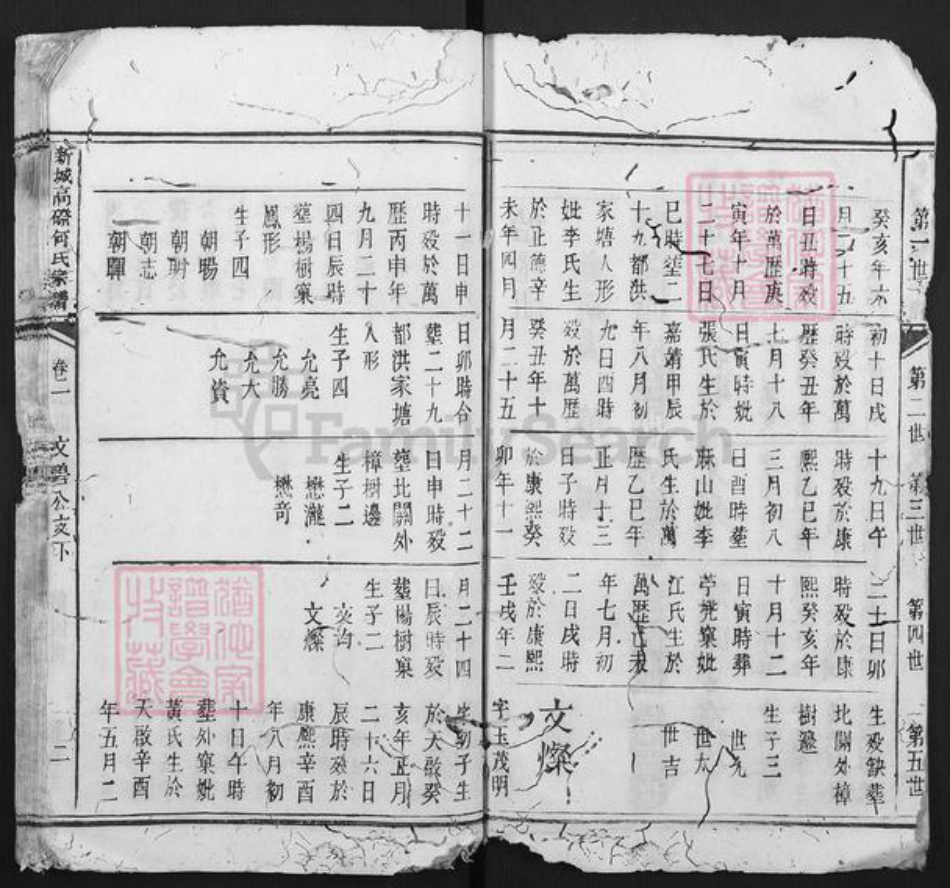 第一世
癸亥年六
月二十五
日丑時殁
於萬歷庚
寅年十月
二十七日
巳時塟二
十九都洪
家塘人形
妣李氏生
於正德辛
未年四月
十一日申
時殁於萬
歷丙申年
九月二十
四日辰時
塟楊樹窠
鳳形
生子四
朝暘
朝
朝志
朝暉
第二世
初十日戌
時殁於萬
歷癸丑年
七月十八
日寅時妣
張氏生於
嘉靖甲辰
年八月初
九日酉時
殁於萬歷
癸丑年十
月二十五
日卯時合
塟二十九
都洪家塘
人形
生子四
允亮
允勝
允大
允資
第三世
十九日午
時殁於康
熙乙巳年
三月初八
日酉時塟
麻山妣李
氏生於萬
歷乙巳年
正月十三
日子時殁
於康熙癸
卯年十一
月二十二
日申時殁
塟北關外
樟樹邊
生子二
懋瀧
懋奇
第四世
二十日卯
時殁於康
熙癸亥年
十月十二
日寅時葬
窠妣
江氏生於
萬歷己未
年七月初
二日戌時
殁於康熙
壬戌年二
月二十四
日辰時殁
塟楊樹窠
生子二
文
文燦
第五世
生殁缺葬
北關外樟
樹邊
生子三
世九
世太
世吉
文燦
字玉茂明
生
於天啟癸
亥年正月
二十六日
辰時殁於
康熙辛酉
年八月初
十日午時
塟外窠妣
黃氏生於
天啟辛酉
年五月二
新城高磜何氏宗譜
卷二
文 公支下
二
FamilySearch